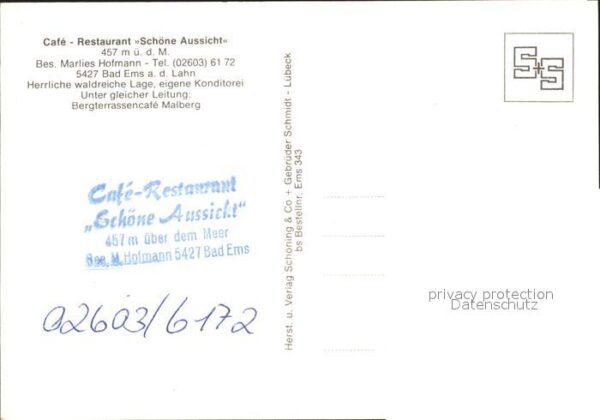 Café - Restaurant »Schöne Aussicht«
457 m ü. d. M.
Bes. Marlies Hofmann - Tel. (02603) 61 72
5427 Bad Ems a. d. Lahn
Herrliche waldreiche Lage, eigene Konditorei
Unter gleicher Leitung:
Bergterrassencafé Malberg
Café-Restaurant
„Schöne Aussicht“
457 m über dem Meer
Bes. M. Hofmann 5427 Bad Ems
02603/6172
Herst. u. Verlag Schöning & Co + Gebrüder Schmidt - Lübeck
bs Bestellnr. Ems 343
S+S
privacy protection
Datenschutz